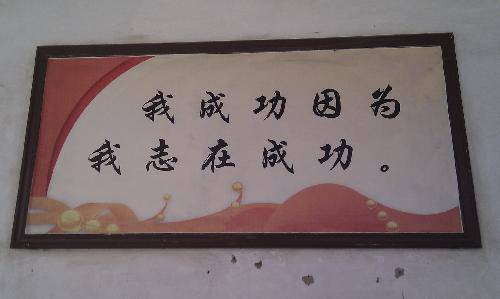 我成功因为
我志在成功。